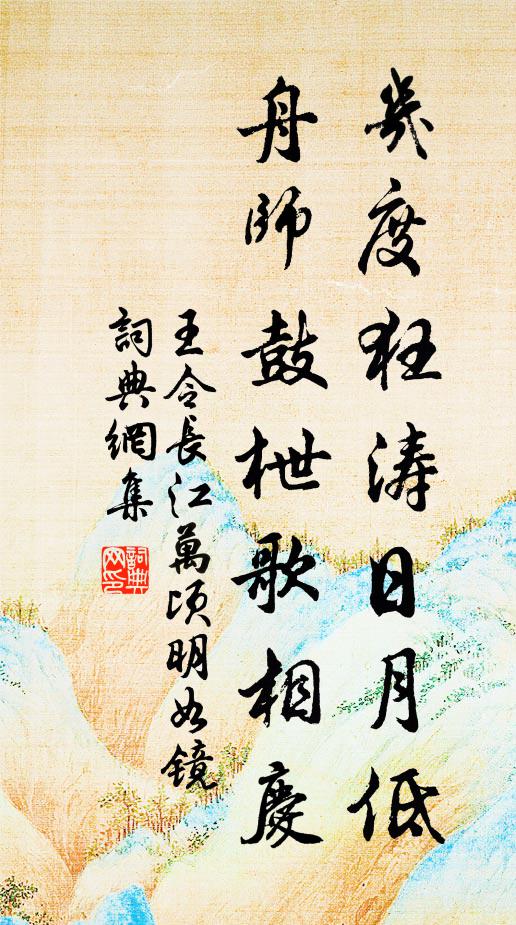 幾度狂涛日月低
舟師鼓枻歌相慶
王令長江萬頃明如鏡
詞典網集
詞典
网印